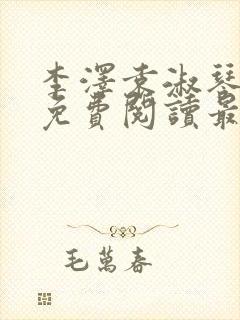 李澤袁淑琴
免費閱讀最
毛萬春